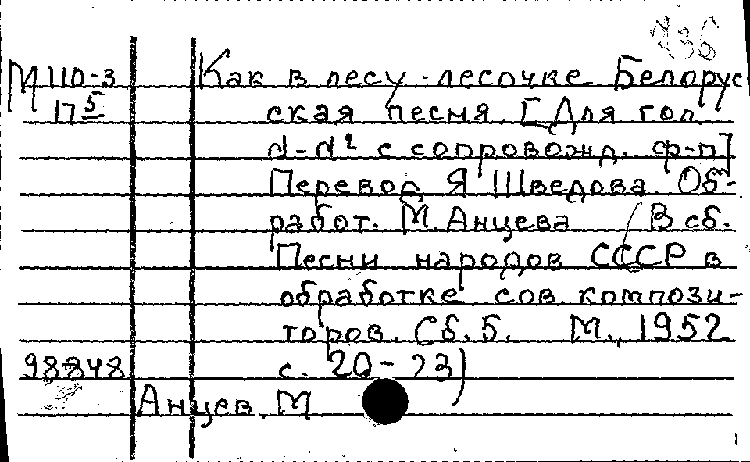 736
М 110-3 Как в лесу-лесочке Белорус
17 5 ская песня. [Для гол.
d-d² с сопровожд. ф-п]
Перевод Я Шведова. Об-
работ. М. Анцева (В сб.
Песни народов СССР в
обработке сов. компози-
торов. Сб. 5. М., 1952
98848 с. 20-23)
Анцев. М